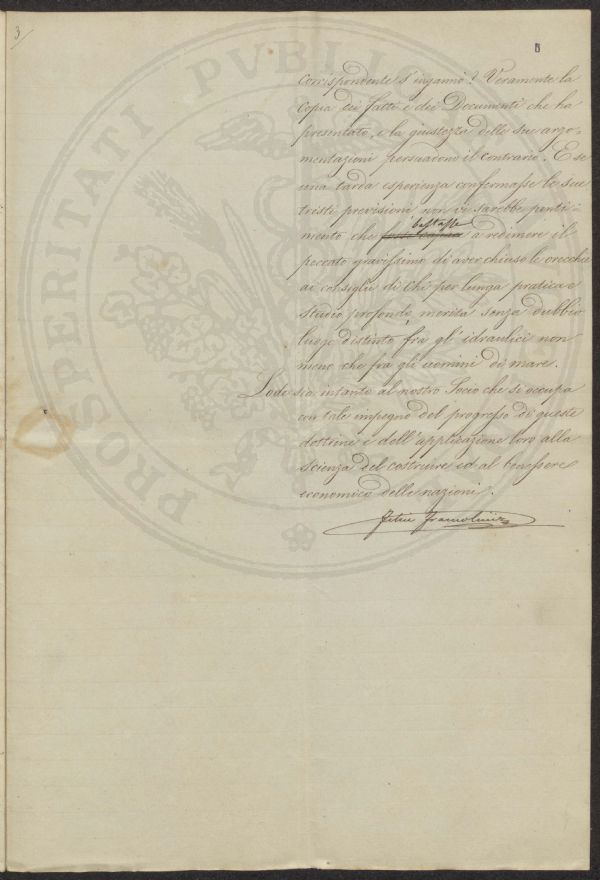 3
corrispondente s'inganni? Veramente la
Copia dei fatti e dei Documenti che ha
presentato, e la giustezza delle sue argo-
mentazioni persuadono il contrario. E se
una tarda esperienza confermasse le sue
tristi previsioni non vi sarebbe penti-
mento che bastasse a redimere il
peccato gravissimo di aver chiuso le orecchie
ai consigli di Chi per lunga pratica e
studio profondo, merita senza dubbio
luogo distinto fra gl'idraulici non
meno che fra gli uomini di mare.
Lode sia intanto al nostro Socio che si occupa
con tale impegno del progresso di queste
dottrine e dell'applicazione loro alla
Scienza del costruire ed al benessere
economico delle nazioni.
PROSPERITATI PVBLICAE